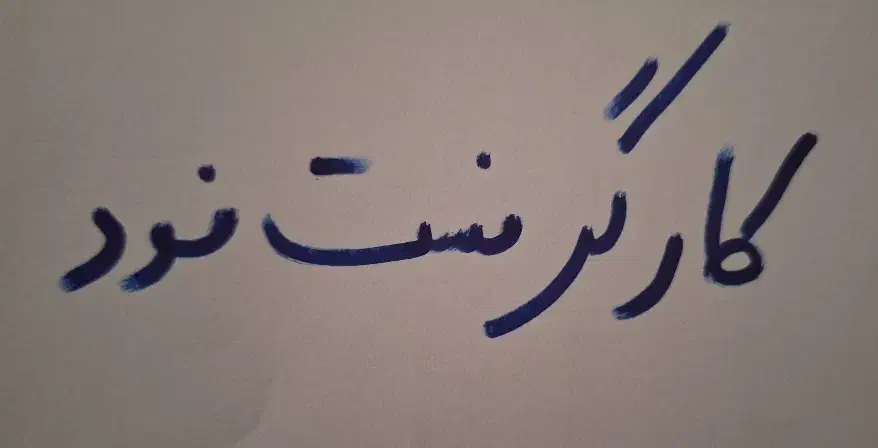 کارگر نست نود